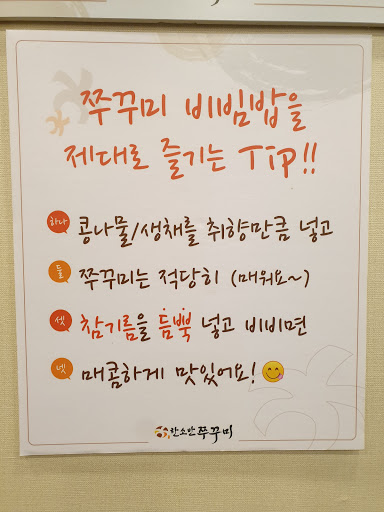 쭈꾸미 비빔밥을
제대로 즐기는 Tip!!
하나 콩나물/생채를 취향만큼 넣고
둘 쭈꾸미는 적당히 (매워요~)
셋 참기름을 듬뿍 넣고 비비면
넷 매콤하게 맛있어요!
한소반쭈꾸미